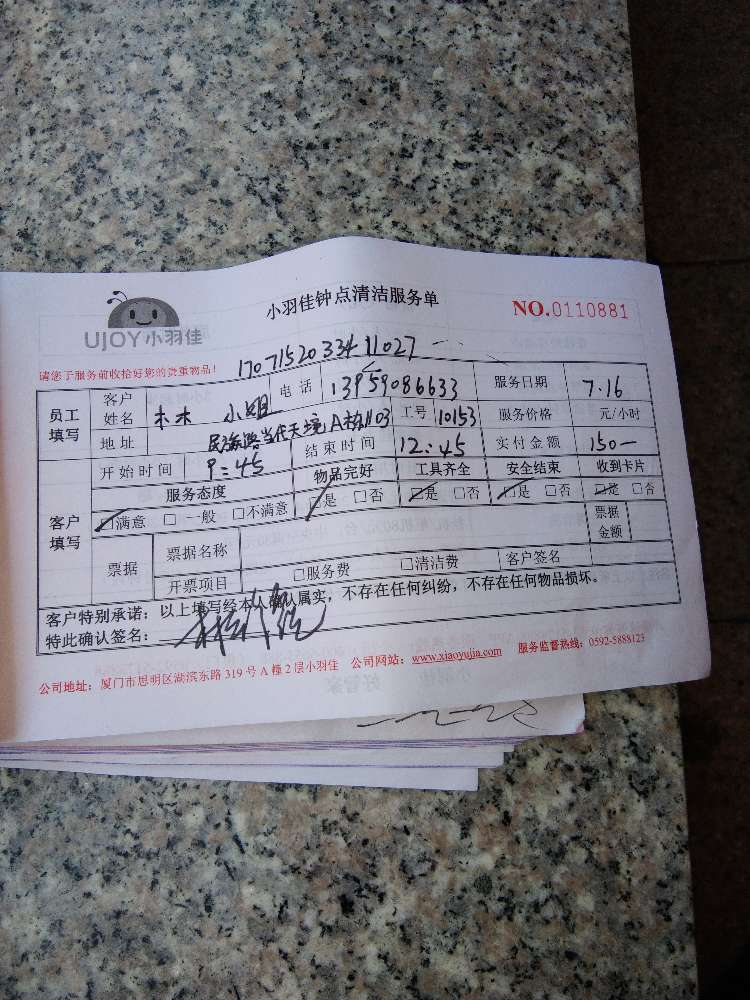 UJOY小羽佳
小羽佳钟点清洁服务单
NO.0110881
请您于服务前收拾好您的贵重物品！
1707152033411027
员工填写
客户姓名 木木 小姐 电话 13959086633 服务日期 7.16
地址 民族路当代天境A栋1103 工号 10153 服务价格 元/小时
开始时间 9:45 结束时间 12:45 实付金额 150—
客户填写
服务态度 物品完好 工具齐全 安全结束 收到卡片
☑满意 □一般 □不满意 ☑是 □否 ☑是 □否 ☑是 □否 ☑是 □否
票据 票据名称 票据金额
开票项目 □服务费 □清洁费 客户签名
客户特别承诺：以上填写经本人确认属实，不存在任何纠纷，不存在任何物品损坏。
特此确认签名：
公司地址：厦门市思明区湖滨东路319号A幢2层小羽佳 公司网站：www.xiaoyujia.com 服务监督热线：0592-5888123